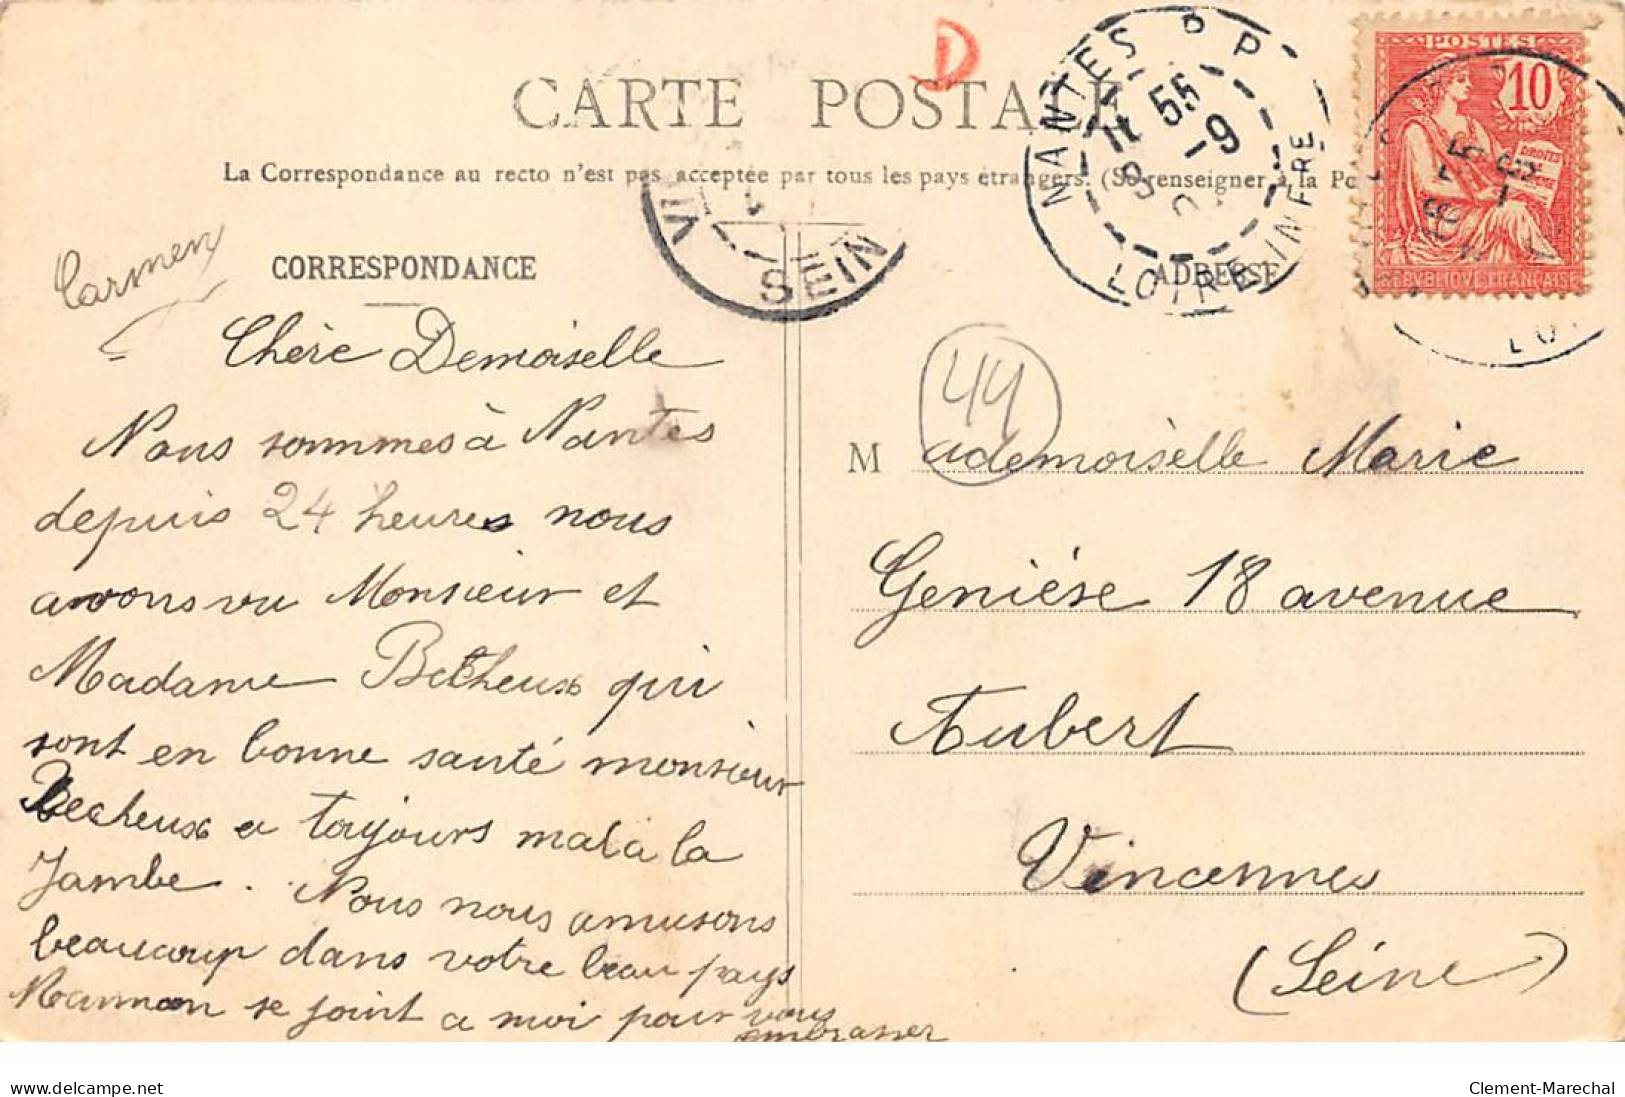 D
CARTE POSTALE
La Correspondance au recto n'est pas acceptée par tous les pays étrangers. (Se renseigner à la Po
NANTES P P
11 55
9
LOIRE INFRE
POSTES
10
REPVBLIQVE FRANÇAISE
LO
SEIN
VI
Carmen
CORRESPONDANCE
ADRESSE
Chère Demoiselle
Nous sommes à Nantes
depuis 24 heures nous
avons vu Monsieur et
Madame Betheux qui
sont en bonne santé monsieur
Becheux a toujours mal a la
Jambe. Nous nous amusons
beaucoup dans votre beau pays
Maman se joint a moi pour vous
embrasser
44
Mademoiselle Marie
Genièse 18 avenue
Aubert
Vincennes
(Seine)
delcampe.net
Clement-Marechal